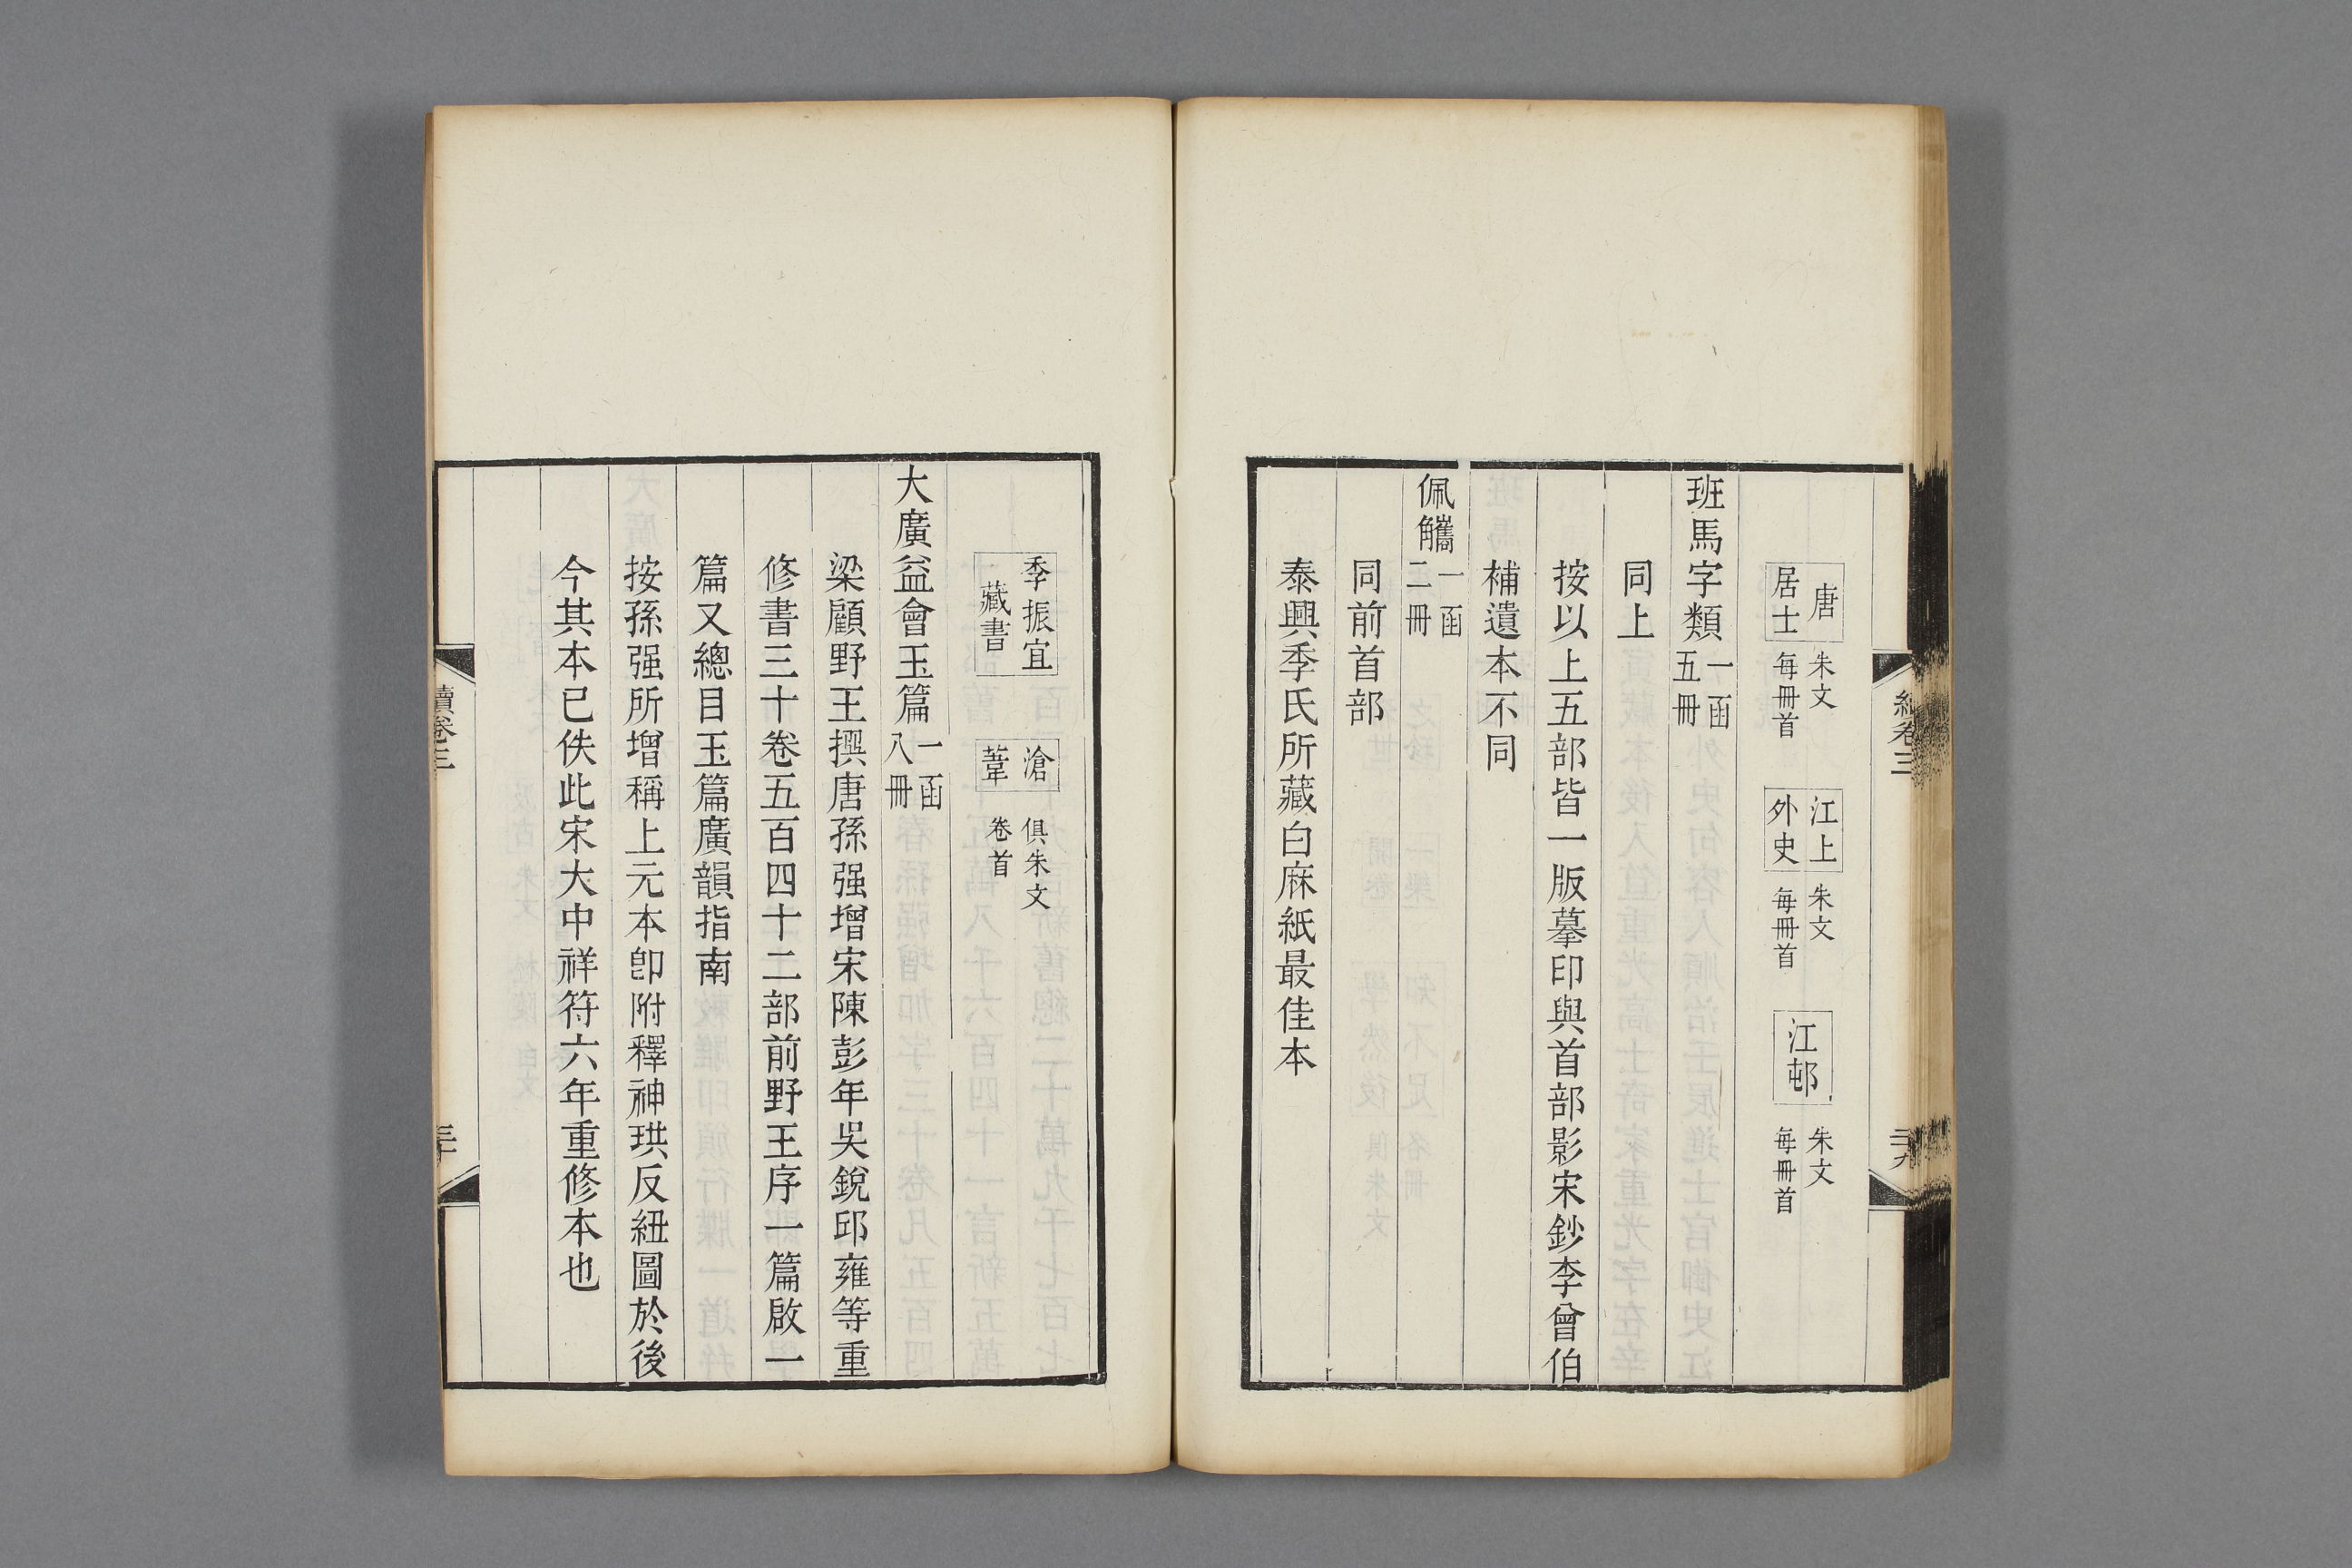 唐居士 朱文每冊首 江上外史 朱文每冊首 江邨 朱文每冊首
班馬字類一函五冊
同上
按以上五部皆一版摹印與首部影宋鈔李曾伯
補遺本不同
佩觿一函二冊
同前首部
泰興季氏所藏白麻紙最佳本
季振宜藏書 滄葦 俱朱文卷首
大廣益會玉篇一函八冊
梁顧野王撰唐孫强增宋陳彭年吳銳邱雍等重
修書三十卷五百四十二部前野王序一篇啟一
篇又總目玉篇廣韻指南
按孫强所增稱上元本卽附釋神珙反紐圖於後
今其本已佚此宋大中祥符六年重修本也
續卷三